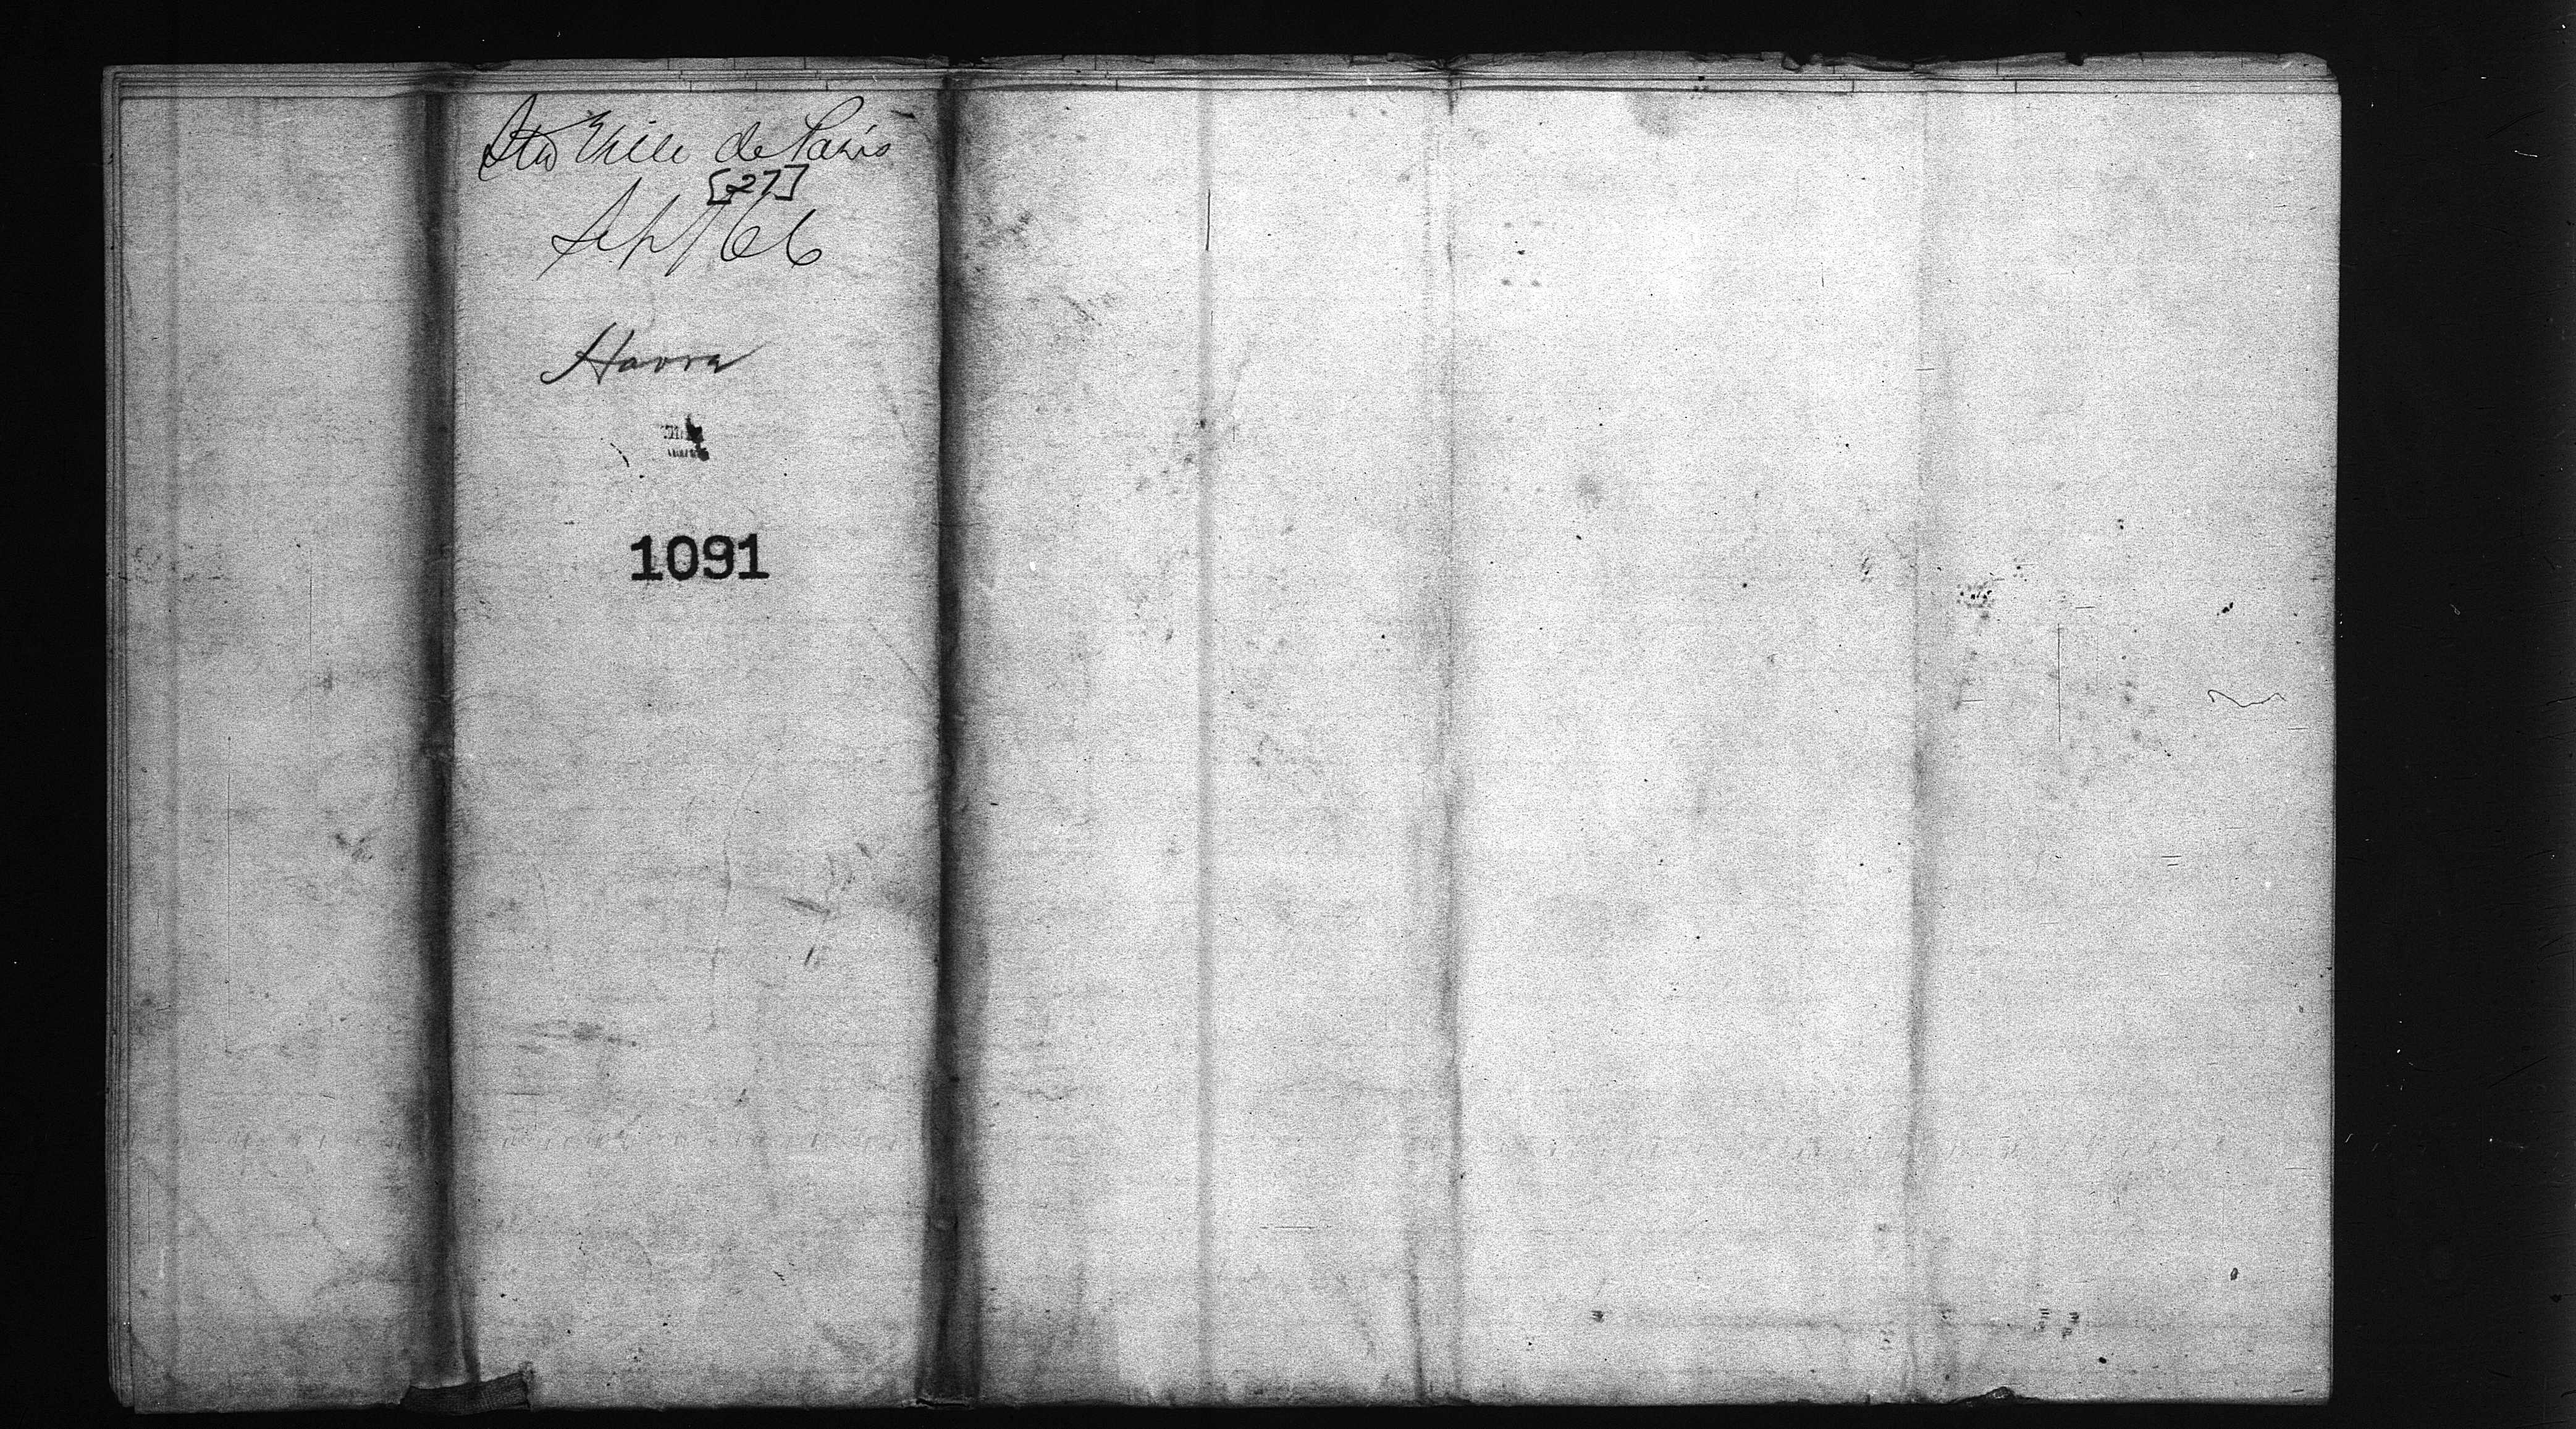 Str Ville de Paris
[27]
Sept 66
Havre
1091